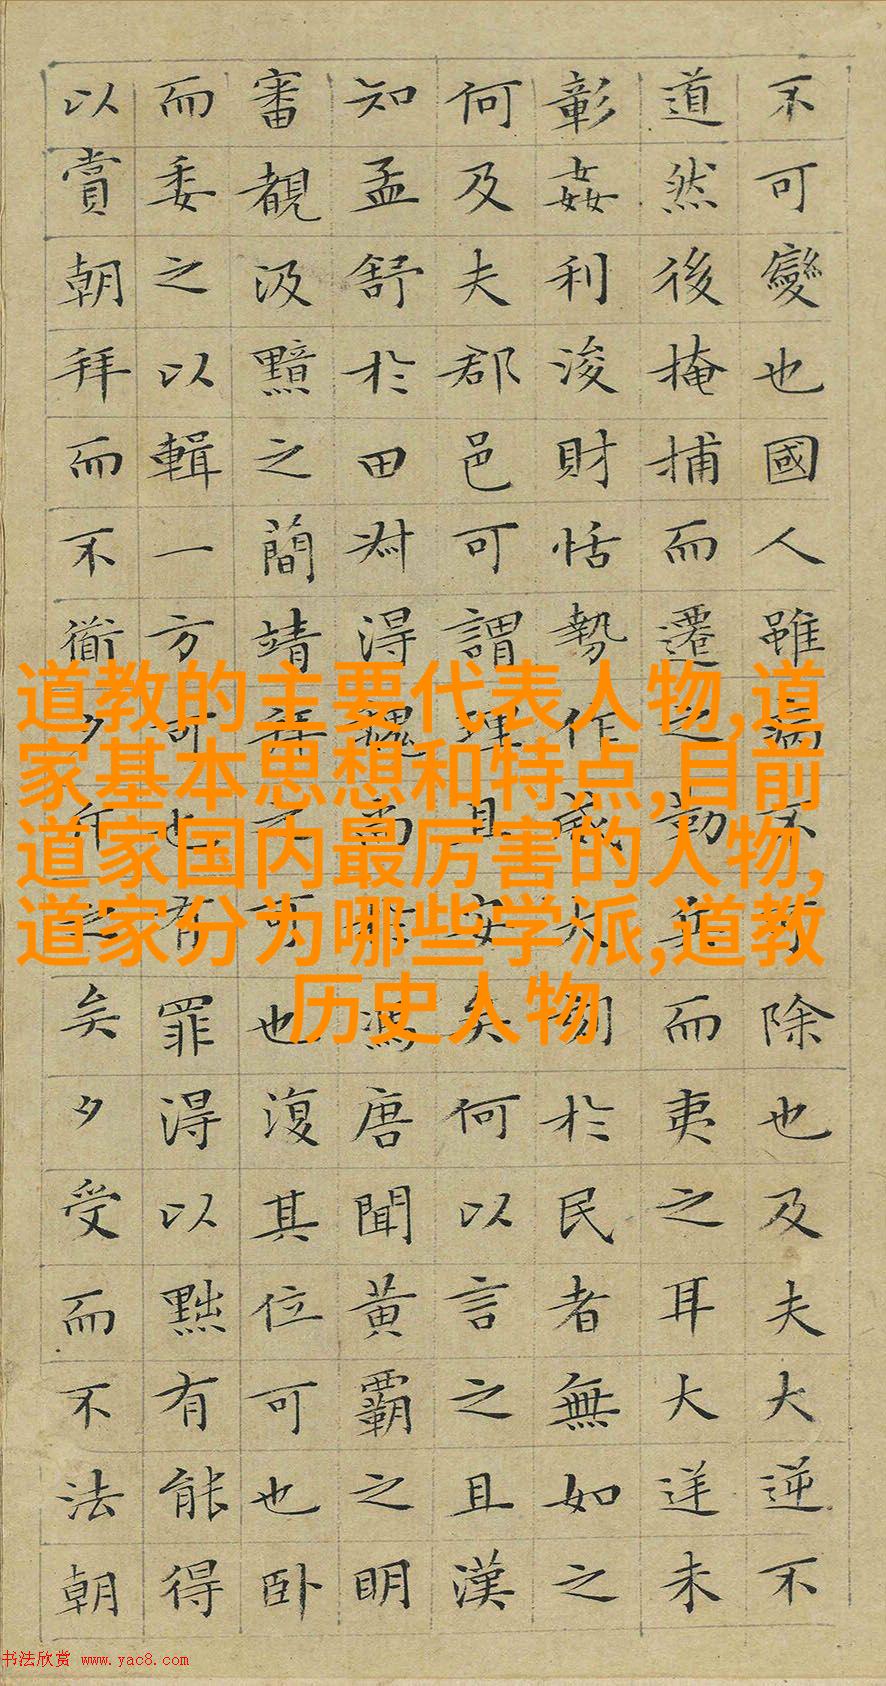 不可變也國人雖病不可除也及夫大逆不
道然後掩捕而遷之勒兵而夷之耳大逆未
彰姦利浚財恬勢作威大刻於民者無如之
何及夫郡邑可謂理且安矣何以言之且漢
知孟舒於田叔得魏尚於馮唐聞黃霸之明
審覩汲黯之簡靖拜之可也復其位可也卧
而委之以輯一方可也有罪得以黜有能得
以賞朝拜而不衜夕斥之矣夕受而不法朝
道教的主要代表人物,道
家基本思想和特点,目前
道家国内最厉害的人物,
道家分为哪些学派,道教
历史人物
书法欣赏 www.yac8.com